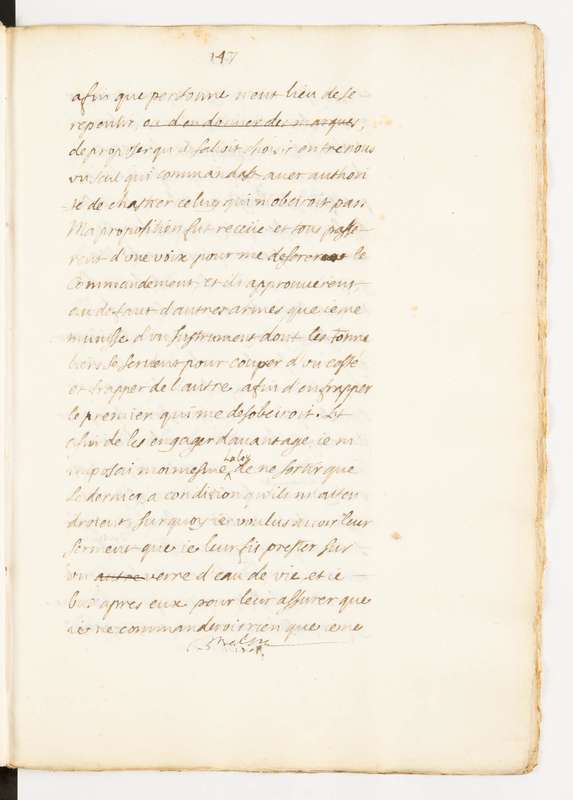 147
afin que personne n'eut lieu de se
repentir, ou d'en donner des marques,
de proposer qu'il faloit choisir entre nous
vn seul qui commandast auec authori
-té de chastier celuy qui n'obeiroit pas.
Ma proposition fut receüe et tous passe
rent d'vne voix pour me deferer le
commandement, et ils approuuerent
au defaut d'autres armes que ie me
munisse d'vn Instrument dont les Tonne
liers se seruent pour couper d'vn costé
et frapper de l'autre, afin d'en frapper
le premier qui me desobeiroit. Et
afin de les engager dauantage ie m
imposai moi mesme la loy de ne sortir que
le dernier, a condition qu'ils m'atten
droient, surquoy ie voulus auoir leur
serment que ie leur fis prester sur
vn autre verre d'eau de vie, et ie
bus apres eux pour leur assurer que
ie ne commanderois rien que ie ne